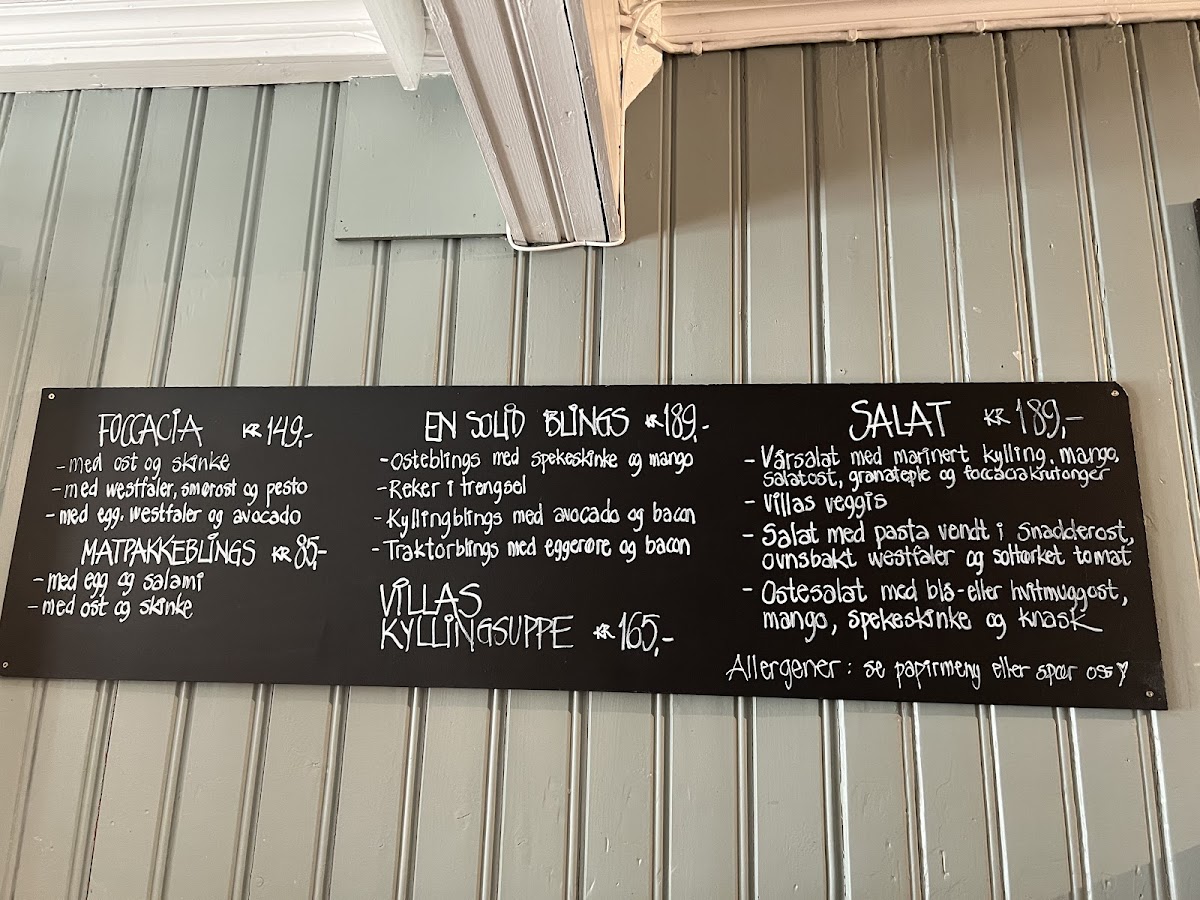 FOCCACIA KR 149,-
- med ost og skinke
- med westfaler, smørost og pesto
- med egg, westfaler og avocado
MATPAKKEBLINGS KR 85,-
- med egg og salami
- med ost og skinke
EN SOLID BLINGS KR 189,-
- Osteblings med spekeskinke og mango
- Reker i trengsel
- Kyllingblings med avocado og bacon
- Traktorblings med eggerøre og bacon
VILLAS
KYLLINGSUPPE KR 165,-
SALAT KR 189,-
- Vårsalat med marinert kylling, mango,
salatost, granateple og foccaciakrutonger
- Villas veggis
- Salat med pasta vendt i Snadderost,
ovnsbakt westfaler og soltørket tomat
- Ostesalat med blå- eller hvitmuggost,
mango, spekeskinke og knask
Allergener: se papirmeny eller spør oss